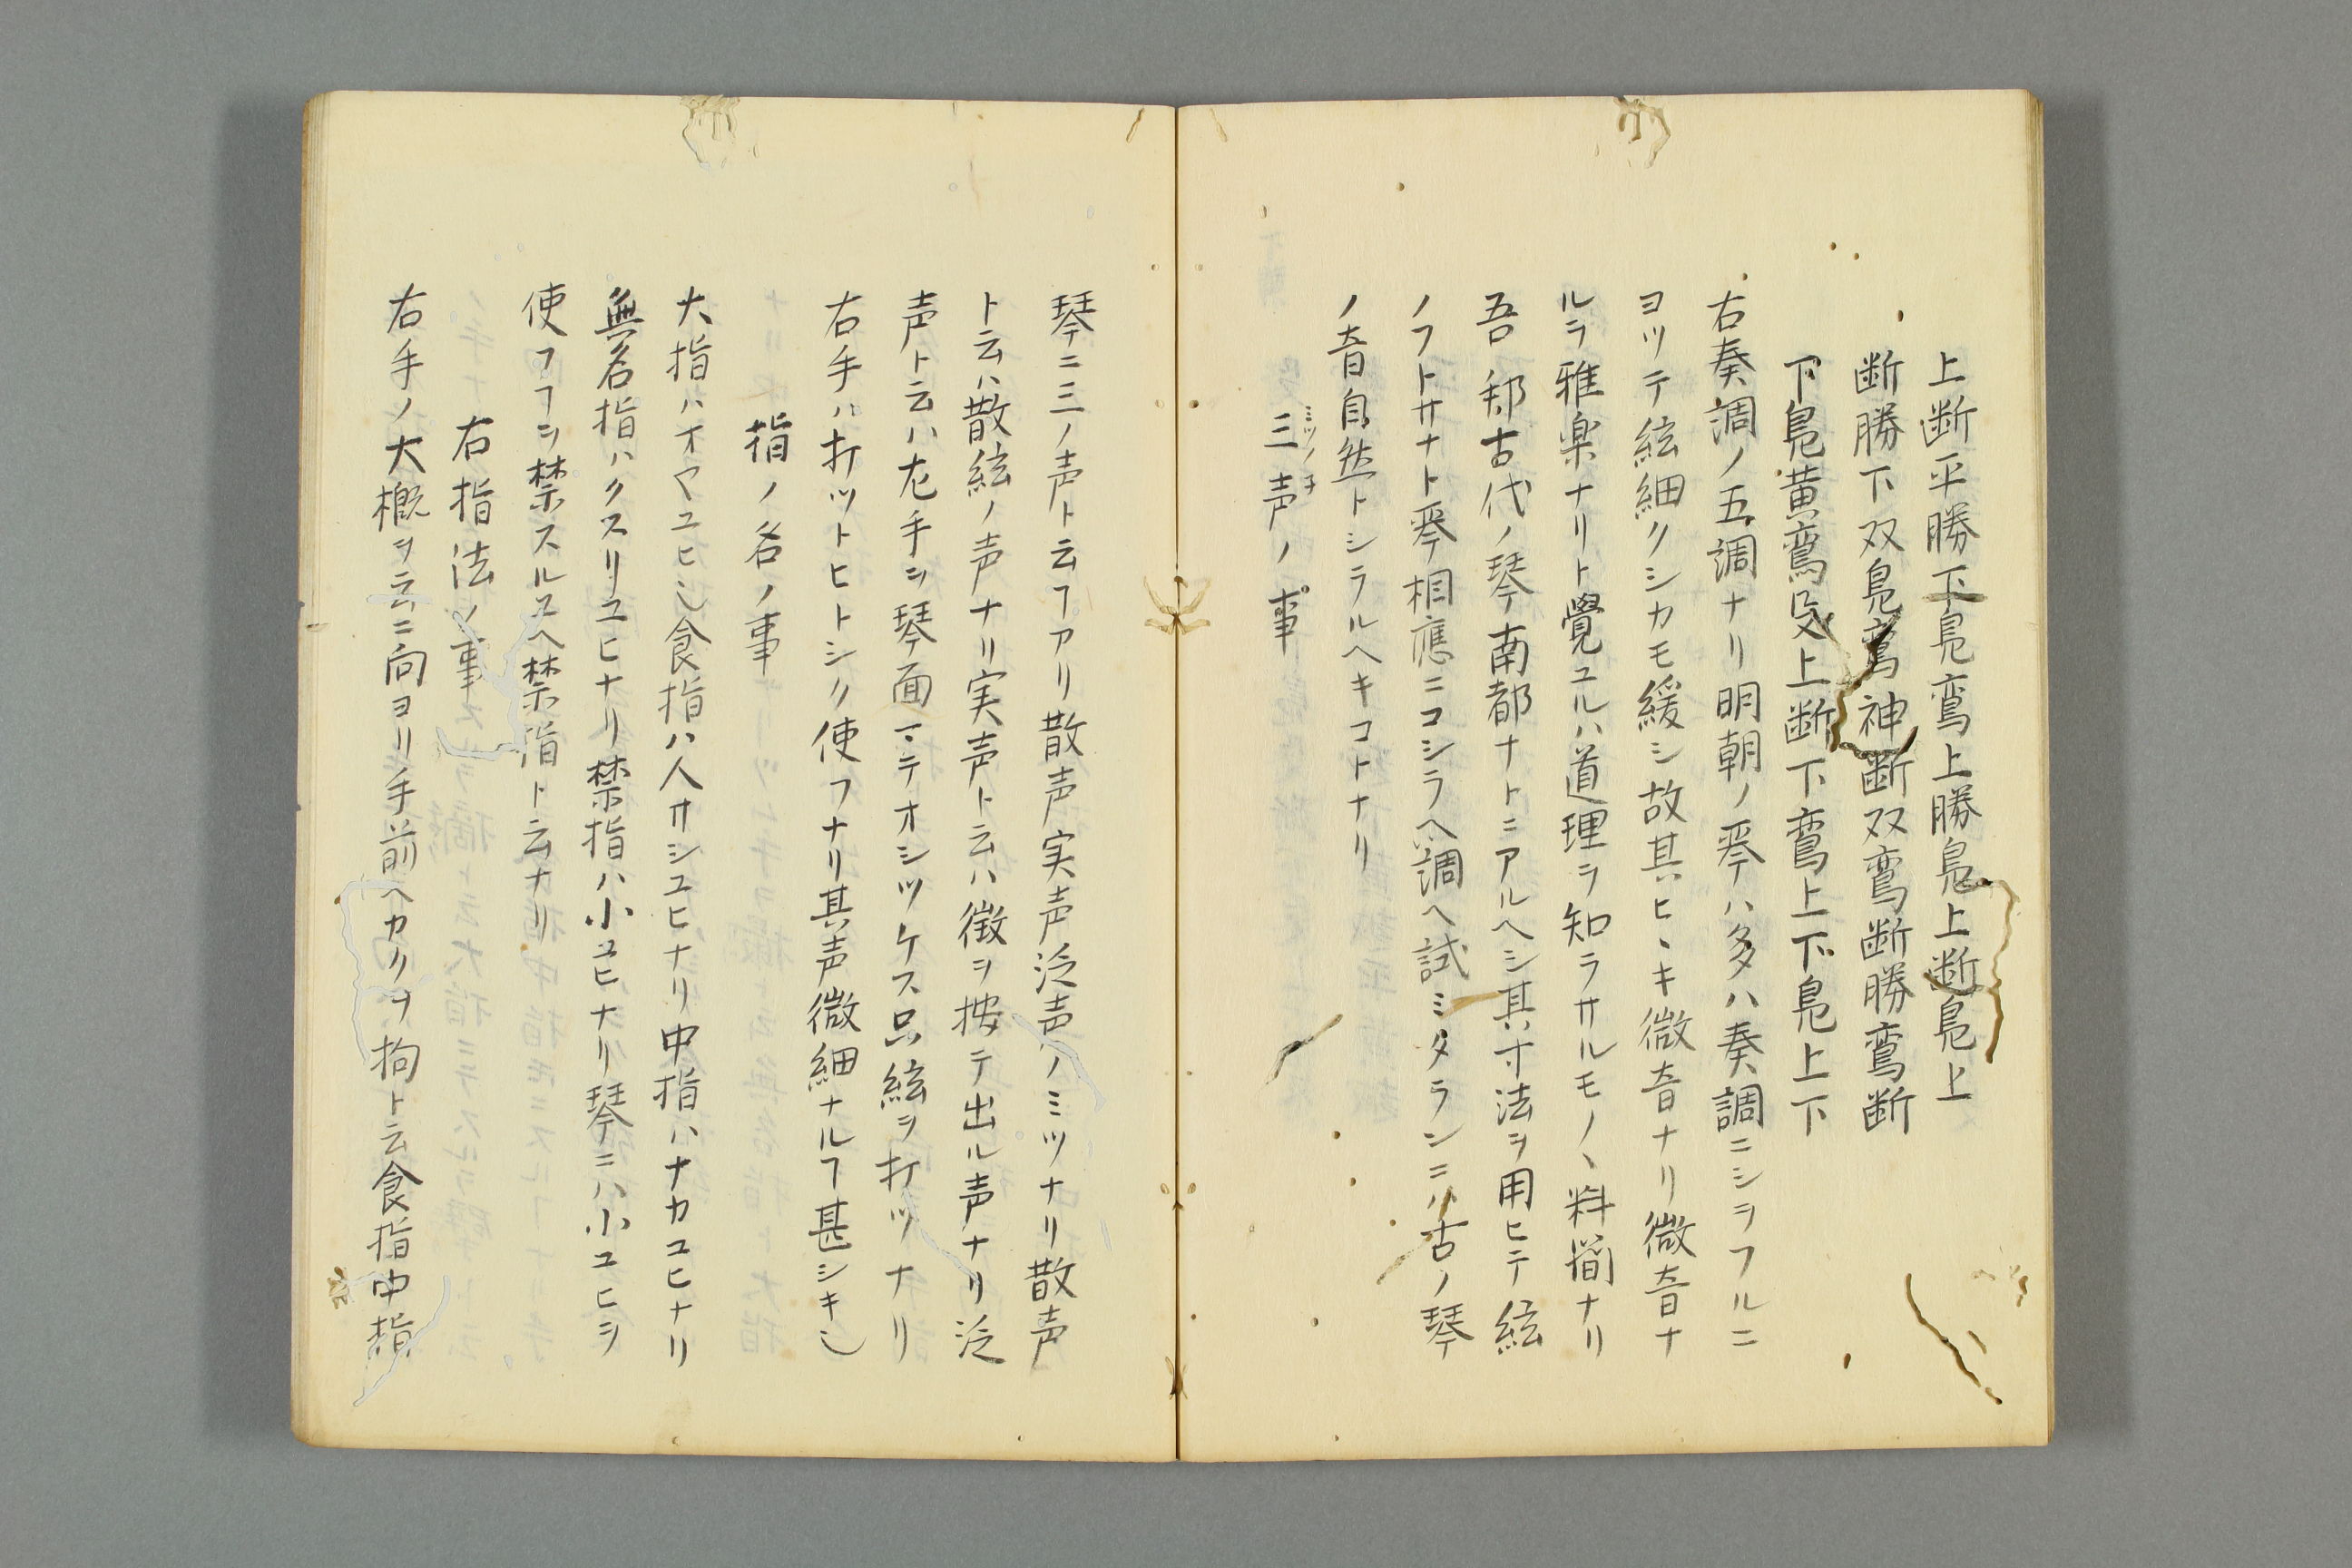 上断平勝下鳧鸞上勝鳧上断鳧上
断勝下双鳧鸞神断双鸞断勝鸞断
下鳧黄鸞 上断下鸞上下鳧上下
右奏調ノ五調ナリ明朝ノ琴ハ多ハ奏調ニシラフルニ
ヨツテ絃細クシカモ緩シ故其ヒヽキ微音ナリ微音ナ
ルヲ雅楽ナリト覺ユルハ道理ヲ知ラサルモノヽ料簡ナリ
吾 邦古代ノ琴南都ナトニアルヘシ其寸法ヲ用ヒテ絃
ノフトサナト琴相應ニコシラヘ調ヘ試ミタランニハ古ノ琴
ノ音自然トシラルヘキコトナリ
三声ノ事
ミツノヲ
琴ニ三ノ声ト云フアリ散声実声泛声ノミツナリ散声
ト云ハ散絃ノ声ナリ実声ト云ハ徴ヲ按テ出ル声ナリ泛
声ト云ハ左手ヲ琴面マテオシツケス只絃ヲ打ツナリ
右手ハ打ツトヒトシク使フナリ其声微細ナルヿ甚シキ乄
指ノ名ノ事
大指ハオヤユヒ乄食指ハ人サシユヒナリ中指ハナカユヒナリ
無名指ハクスリユヒナリ禁指ハ小ユヒナリ琴ニハ小ユヒヲ
使フヿヲ禁スルユヘ禁指ト云ナリ
右指法ノ事
右手ノ大概ヲ云ニ向ヨリ手前ヘカクヲ拘ト云食指中指